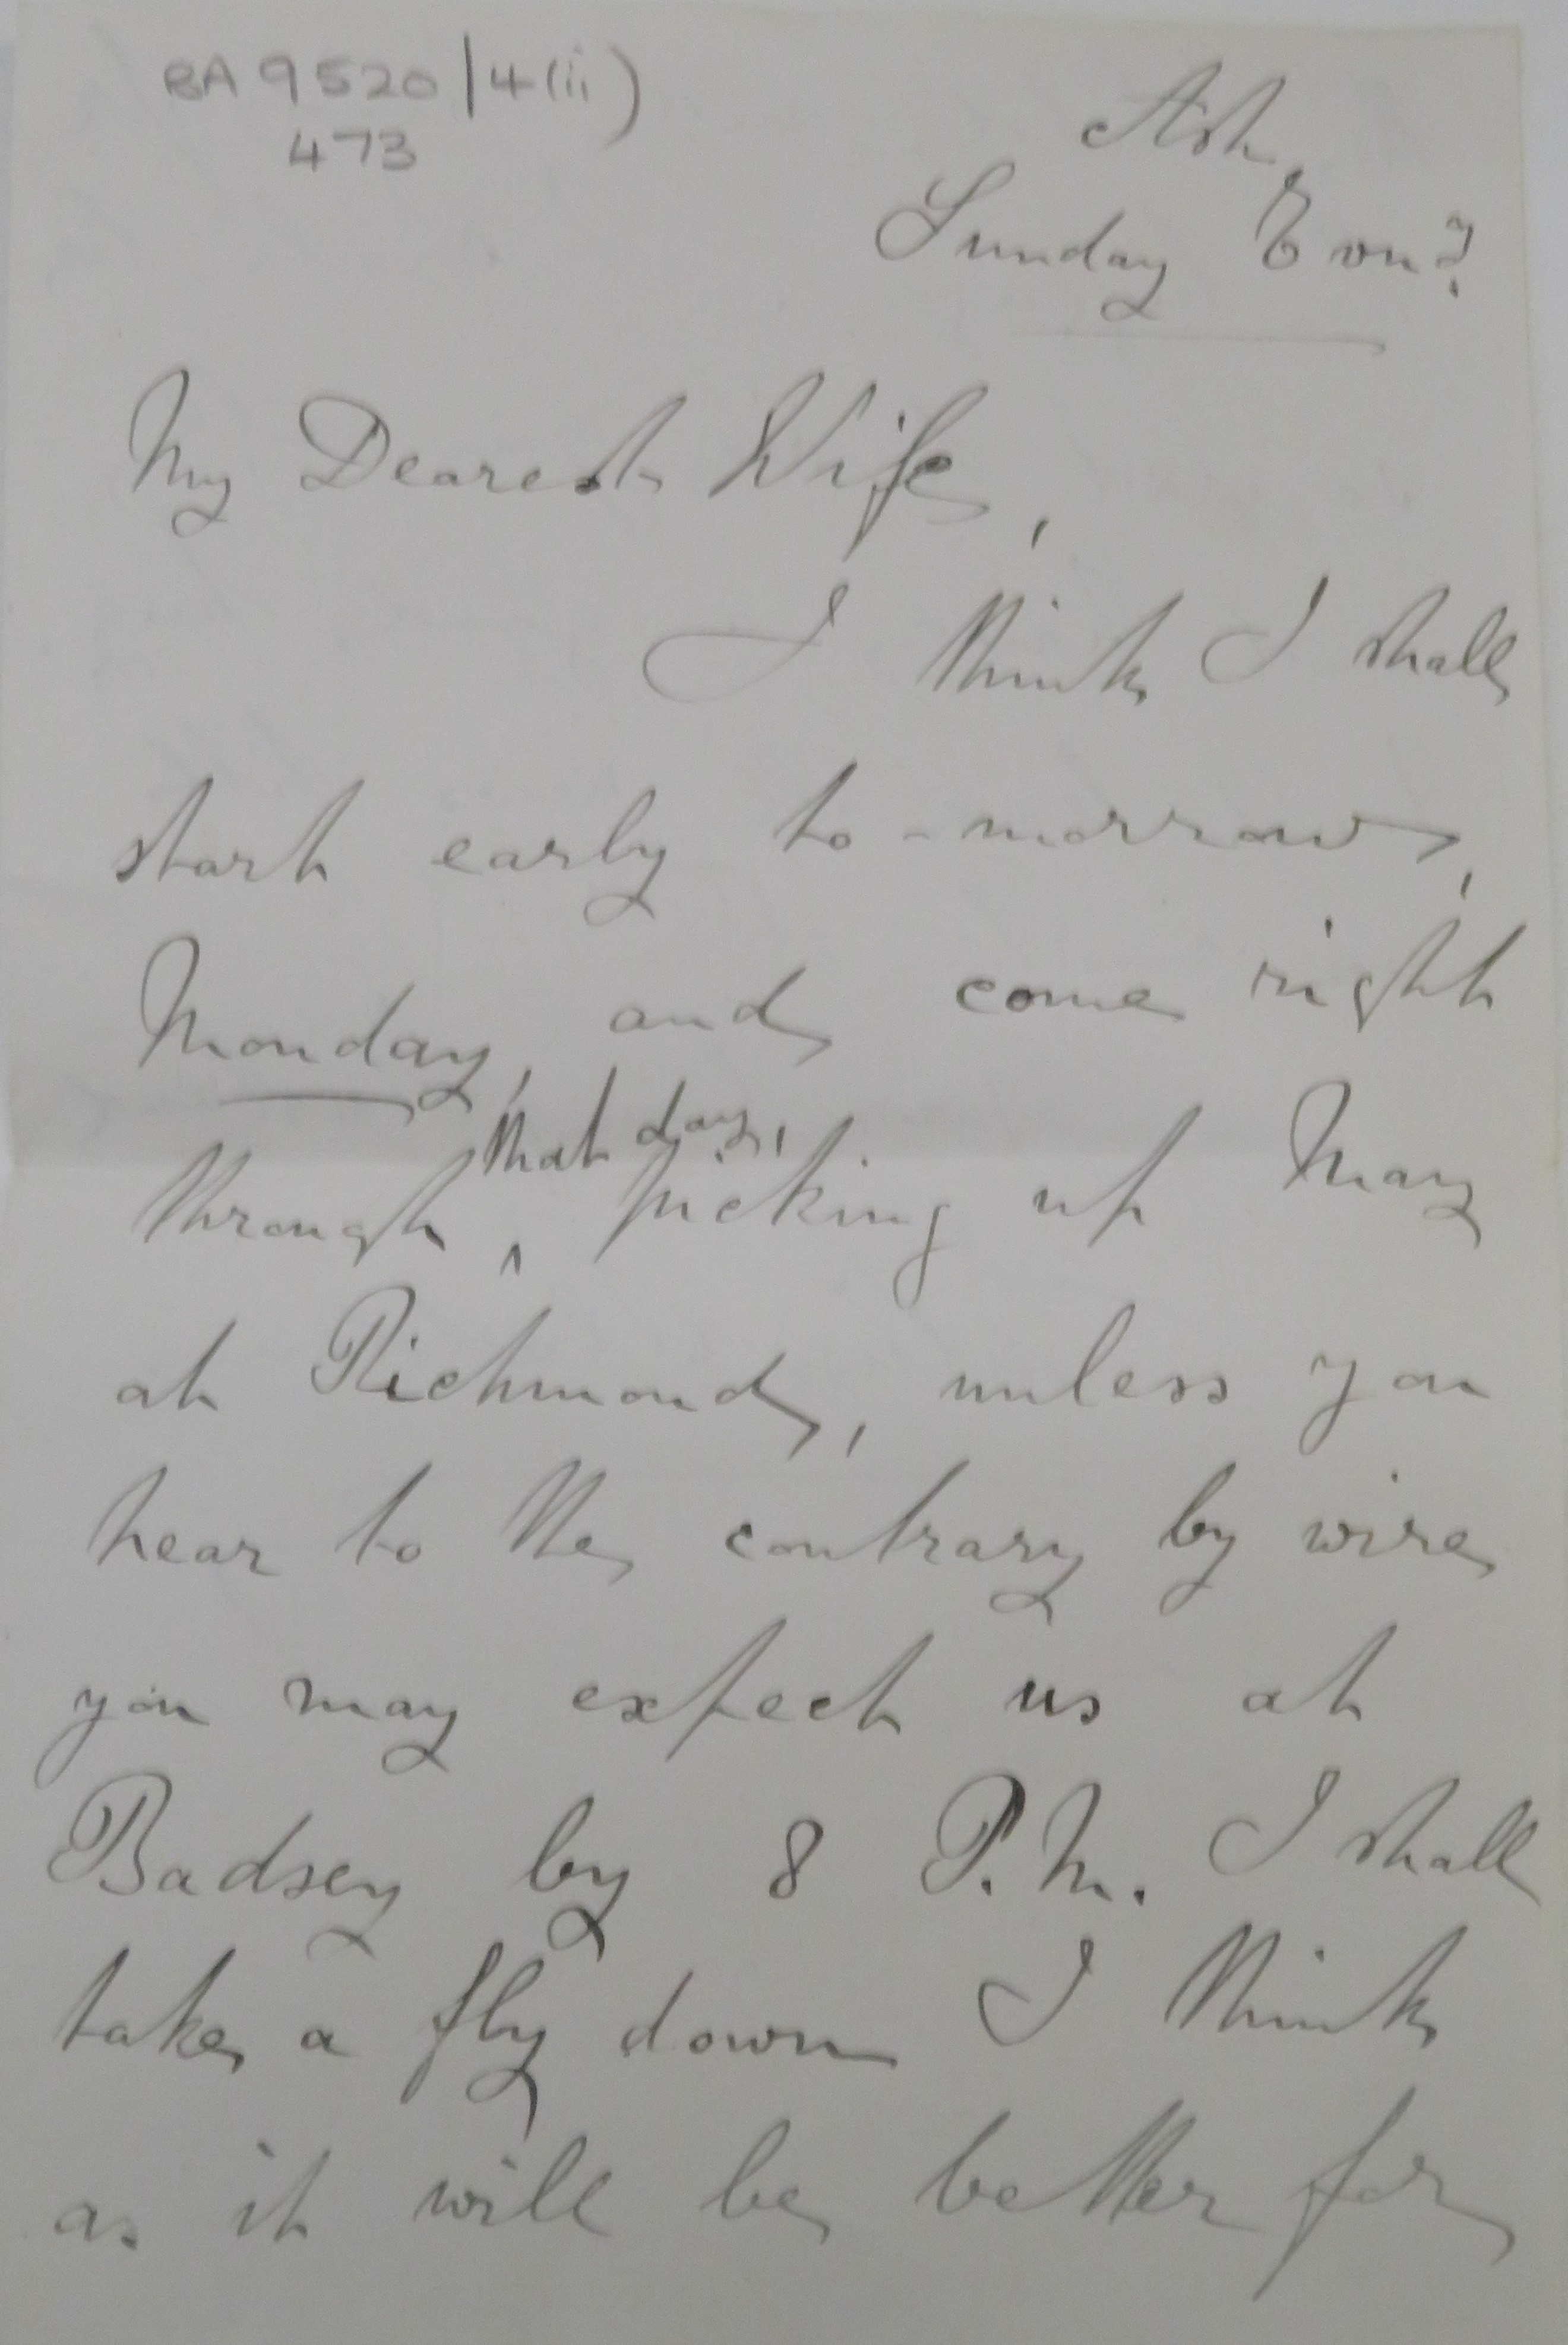 BA 9520/4(ii)
473
Ash,
Sunday Even^g.
My Dearest Wife,
I think I shall
start early to-morrow,
Monday, and come right
through, ^that day, picking up May
at Richmond, unless you
hear to the contrary by wire
you may expect us at
Badsey by 8 P.M. I shall
take a fly down I think
as it will be better for